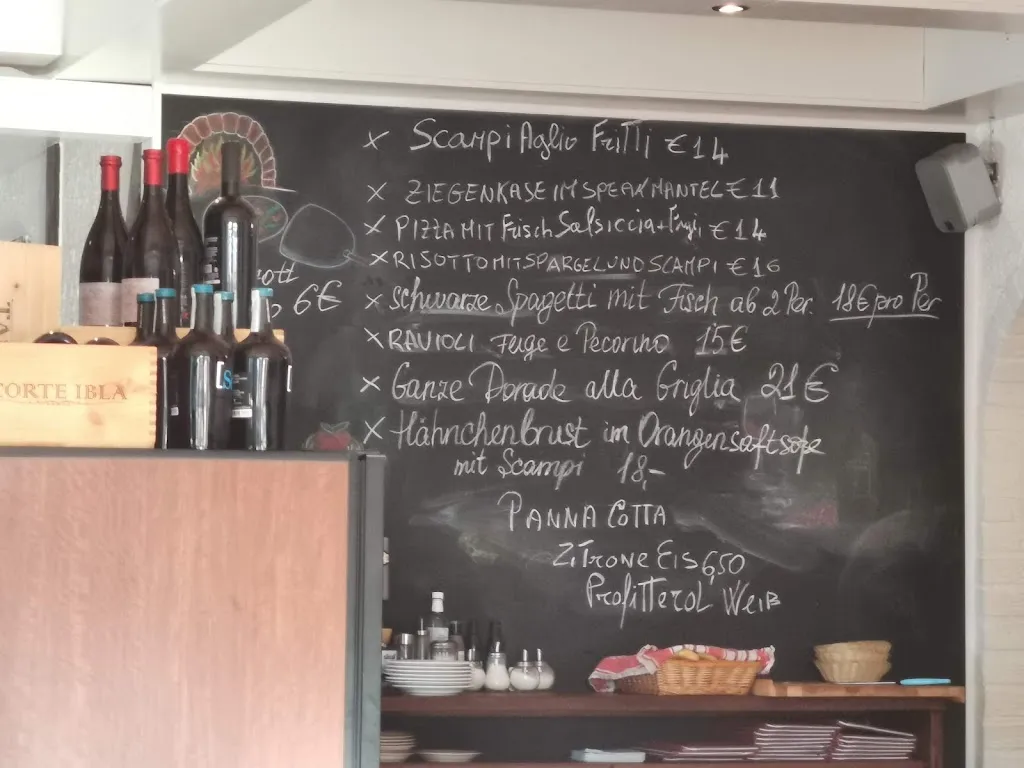 x Scampi Aglio Fritti €14
x ZIEGENKASE IM SPEAKMANTEL € 11
x PIZZA MIT Frisch Salsiccia + Fugi €14
x RISOTTO MIT SPARGEL UND SCAMPI €16
x schwarze Spagetti mit Fisch ab 2 Per. 18€ pro Per
x RAVIOLI Feige e Pecorino 15€
x Ganze Dorade alla Griglia 21€
x Hähnchenbrust im Orangensaftsoße
mit Scampi 18,-
PANNA COTTA
ZITRONE EIS 6,50
Profitterol Weiß
ott
6€
CORTE IBLA